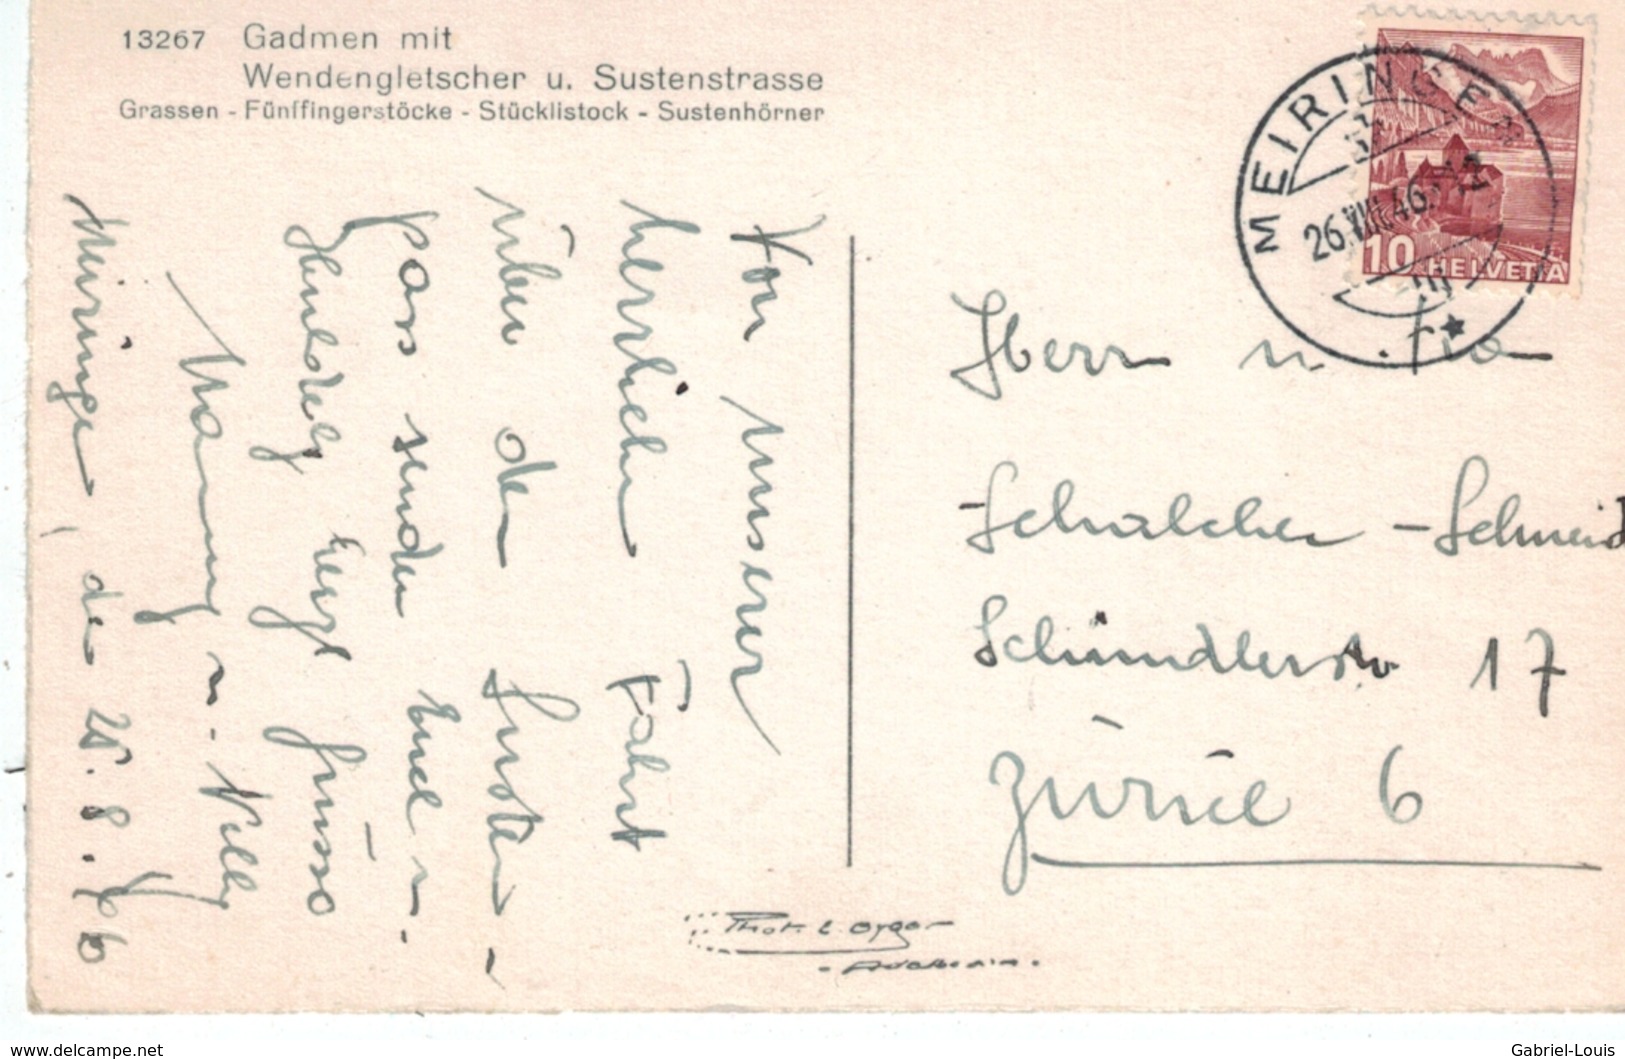 13267 Gadmen mit
Wendengletscher u. Sustenstrasse
Grassen - Fünffingerstöcke - Stücklistock - Sustenhörner
MEIRINGEN
26.VIII.46.
10 HELVETIA
Von unserer
herrlichen Fahrt
über den Susten-
pass senden Euch u.
recht Grüsse
u. Nelly
Meiringen, den 25.8.46
Herrn u.
Schalcher - Schneid
Schindlerstr 17
Zürich 6
Phot.
www.delcampe.net
Gabriel-Louis